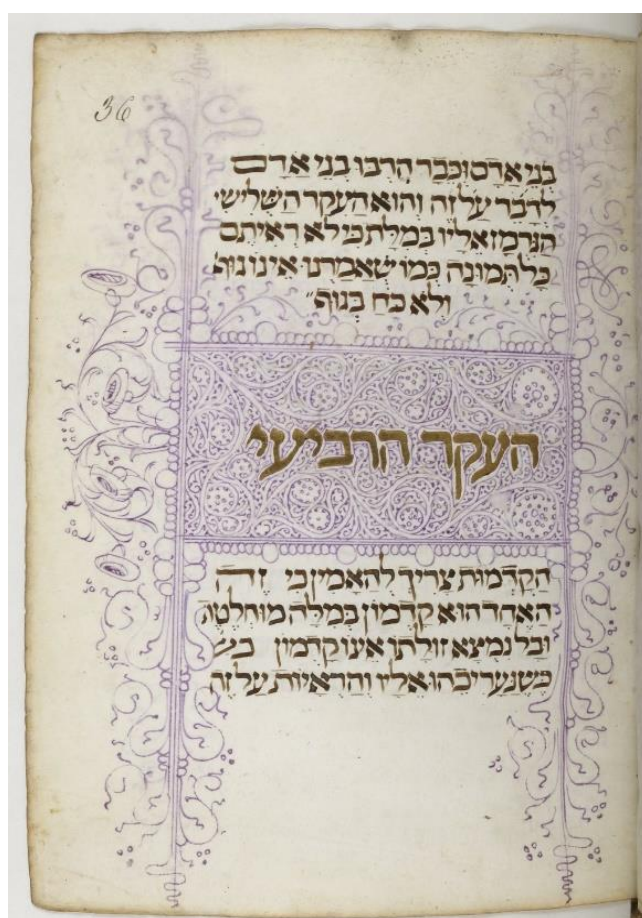 36
בני אדם וכבר הרבו בני אדם
לדבר על זה והוא העקר השלישי
הנרמז אליו במלת כי לא ראיתם
כל תמונה כמו שאמרנו אינו גוף
ולא כח בגוף
העקר הרביעי
הקדמות צריך להאמין כי זה
האחד הוא קדמון במלה מוחלטת
וכל נמצא זולתו אינו קדמון
כשנעריכהו אליו והראיות על זה